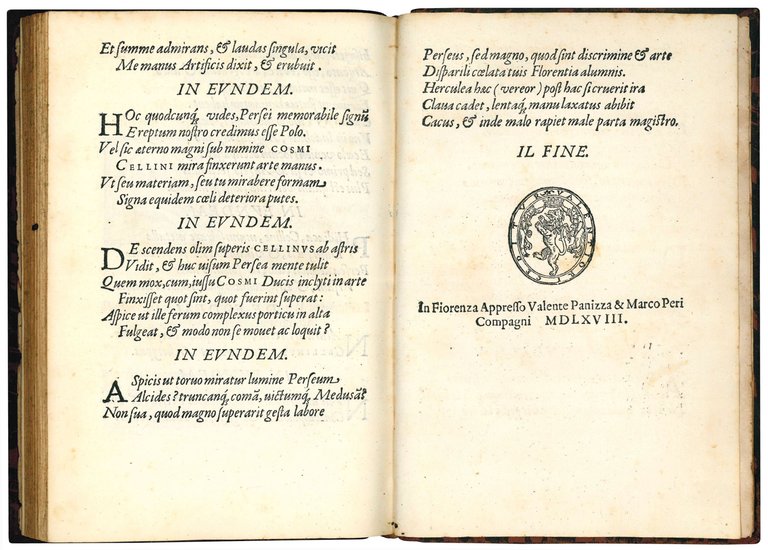 Et ſumme admirans, & laudas ſingula, vicit
Me manus Artificis dixit, & erubuit.
IN EVNDEM.
HOc quodcunq́, vides, Perſei memorabile ſignũ
Ereptum noſtro credimus eſſe Polo.
Vel ſic æterno magni ſub numine COSMI
CELLINI mira finxerunt arte manus.
Vt ſeu materiam, ſeu tu mirabere formam
Signa equidem cœli deteriora putes.
IN EVNDEM.
DE ſcendens olim ſuperis CELLINVS ab aſtris
Vidit, & huc uiſum Perſea mente tulit
Quem mox, cum, iuſſu COSMI Ducis inclyti in arte
Finxiſſet quot ſint, quot fuerint ſuperat:
Aſpice ut ille ferum complexus porticu in alta
Fulgeat, & modo non ſe mouet ac loquit?
IN EVNDEM.
ASpicis ut toruo miratur lumine Perſeum
Alcides? truncanq́, comã, uictumq́, Medusã?
Non ſua, quod magno ſuperarit geſta labore
Perſeus, ſed magno, quod ſint diſcrimine & arte
Diſparili cœlata tuis Florentia alumnis.
Herculea hac (vereor) poſt hac ſi cruerit ira
Claua cadet, lentaq́, manu laxatus abibit
Cacus, & inde malo rapiet male parta magiſtro.
IL FINE.
In Fiorenza Appreſſo Valente Panizza & Marco Peri
Compagni MDLXVIII.